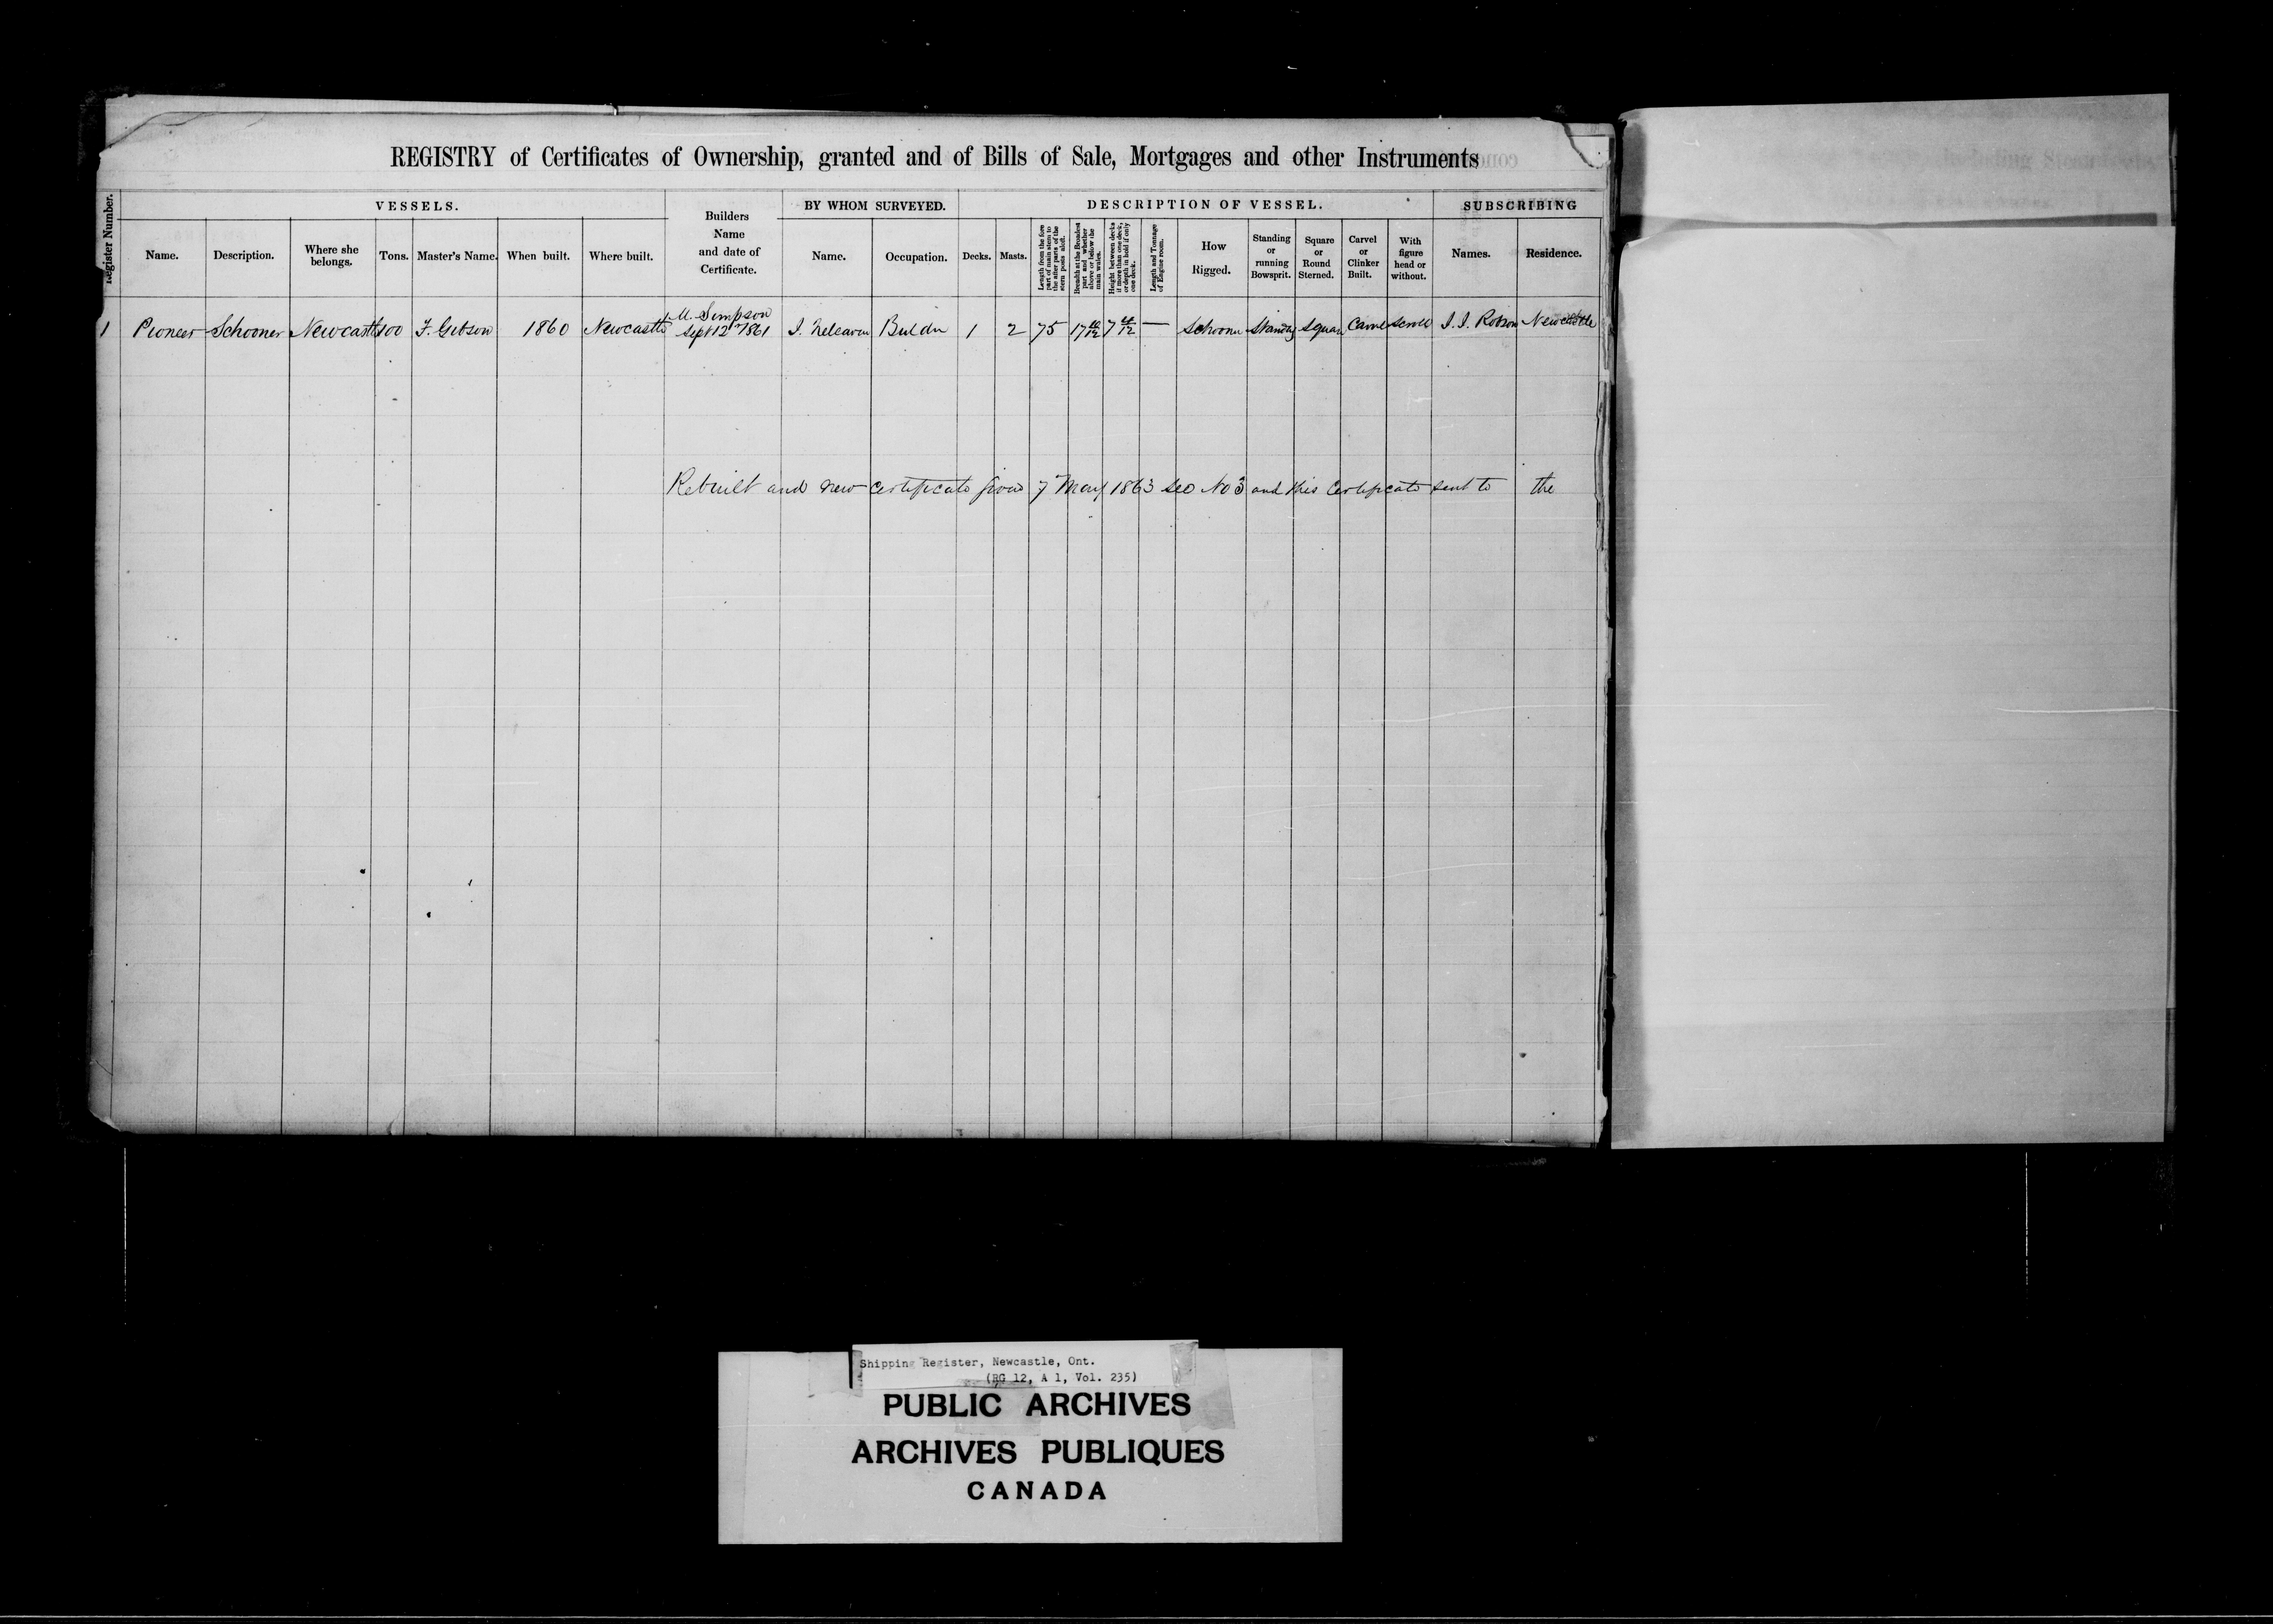 REGISTRY of Certificates of Ownership, granted and of Bills of Sale, Mortgages and other Instruments
Register Number.
VESSELS.
Name.
Description.
Where she belongs.
Tons.
Master's Name.
When built.
Where built.
Builders Name and date of Certificate.
BY WHOM SURVEYED.
Name.
Occupation.
DESCRIPTION OF VESSEL.
Decks.
Masts.
Length from the fore part of main stem to the after parts of the stern posts aloft.
Breadth at the Broadest part and whether above or below the main wales.
Height between decks if more than one deck, or depth in hold if only one deck.
Length and Tonnage of Engine room.
How Rigged.
Standing or running Bowsprit.
Square or Round Sterned.
Carvel or Clinker Built.
With figure head or without.
SUBSCRIBING
Names.
Residence.
1 Pioneer Schooner Newcastle 100 F. Gibson 1860 Newcastle M. Simpson Sept 12th 1861 1 2 75 Schooner Standing Square Carvel Scroll Robson Newcastle
Rebuilt and new Certificate given 7 May 1863 see No 3 and this Certificate sent to the
Shipping Register, Newcastle, Ont.
(RG 12, A 1, Vol. 235)
PUBLIC ARCHIVES
ARCHIVES PUBLIQUES
CANADA